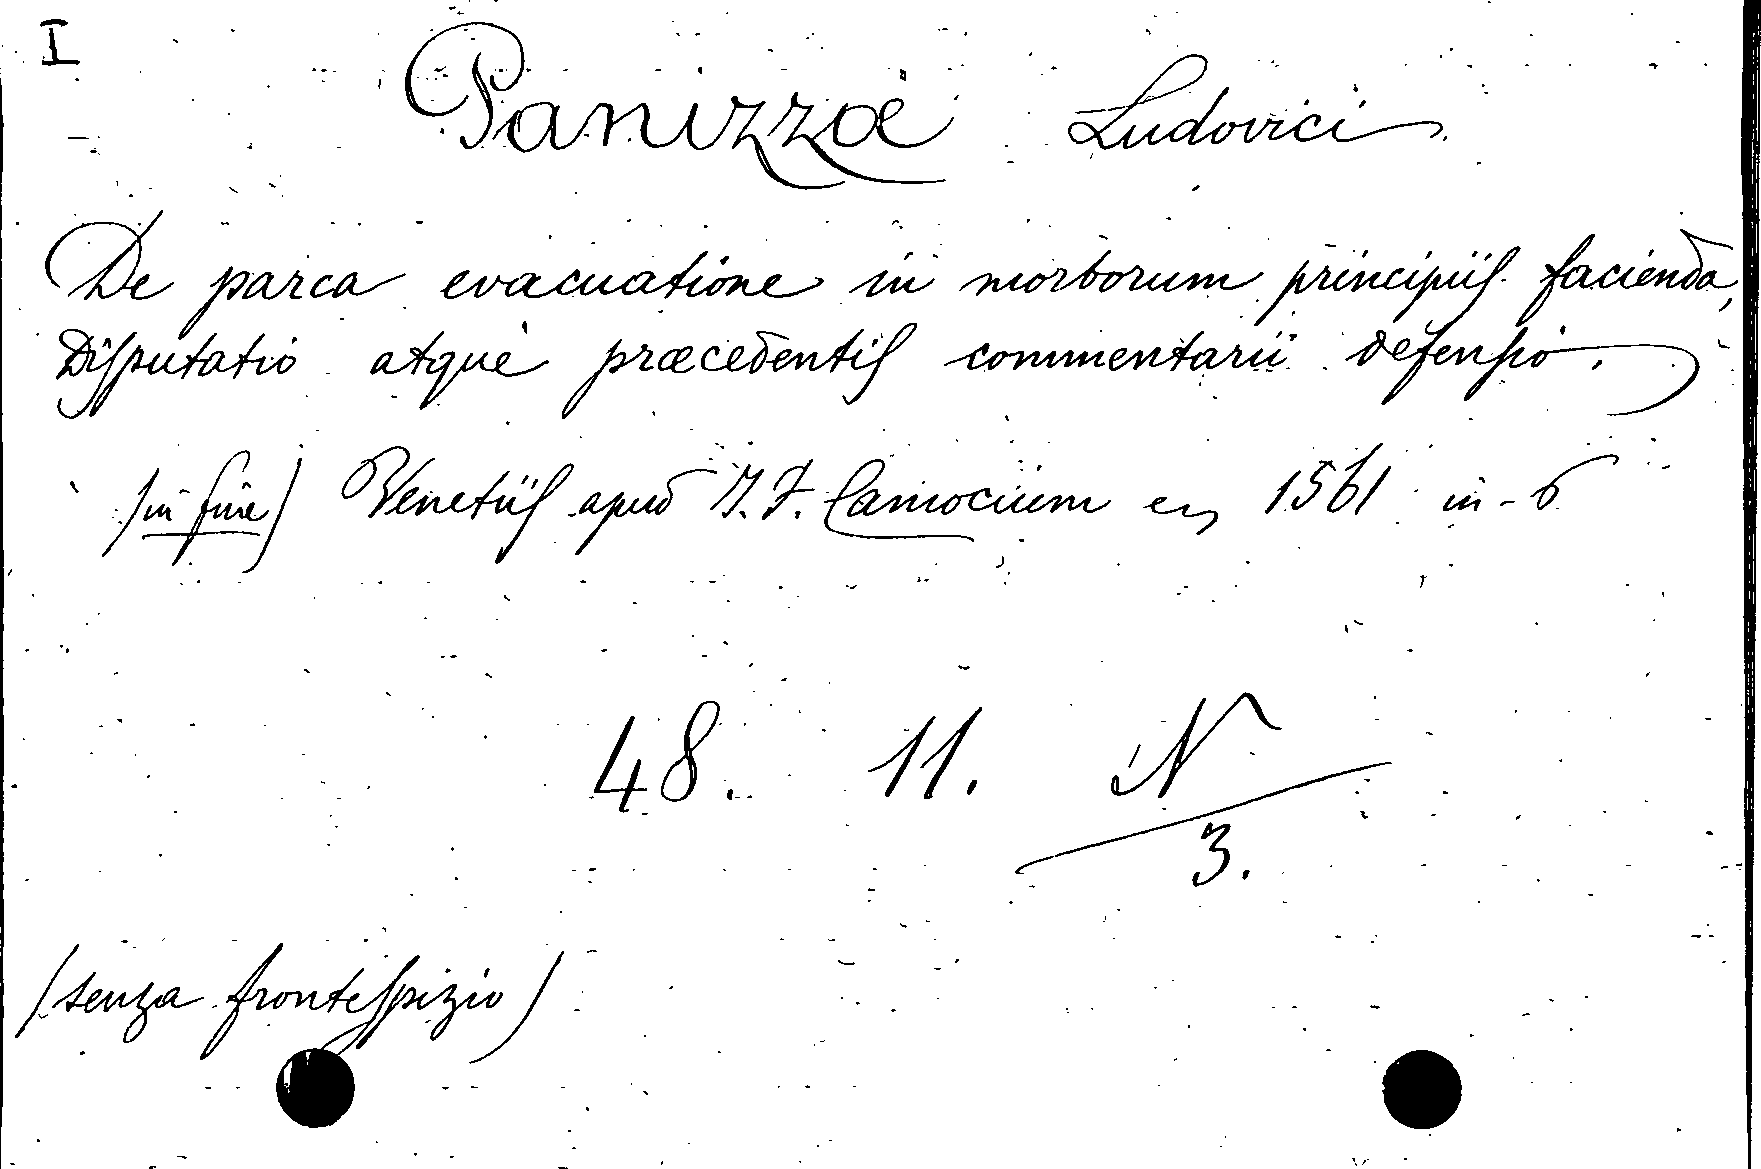 I
Panizzæ Ludovici
De parca evacuatione in morborum principiis facienda,
Disputatio atque præcedentis commentarii defensio.
(in fine) Venetiis apud I. F. Camocium 1561 in-6
48. 11. N
3.
(senza frontespizio)